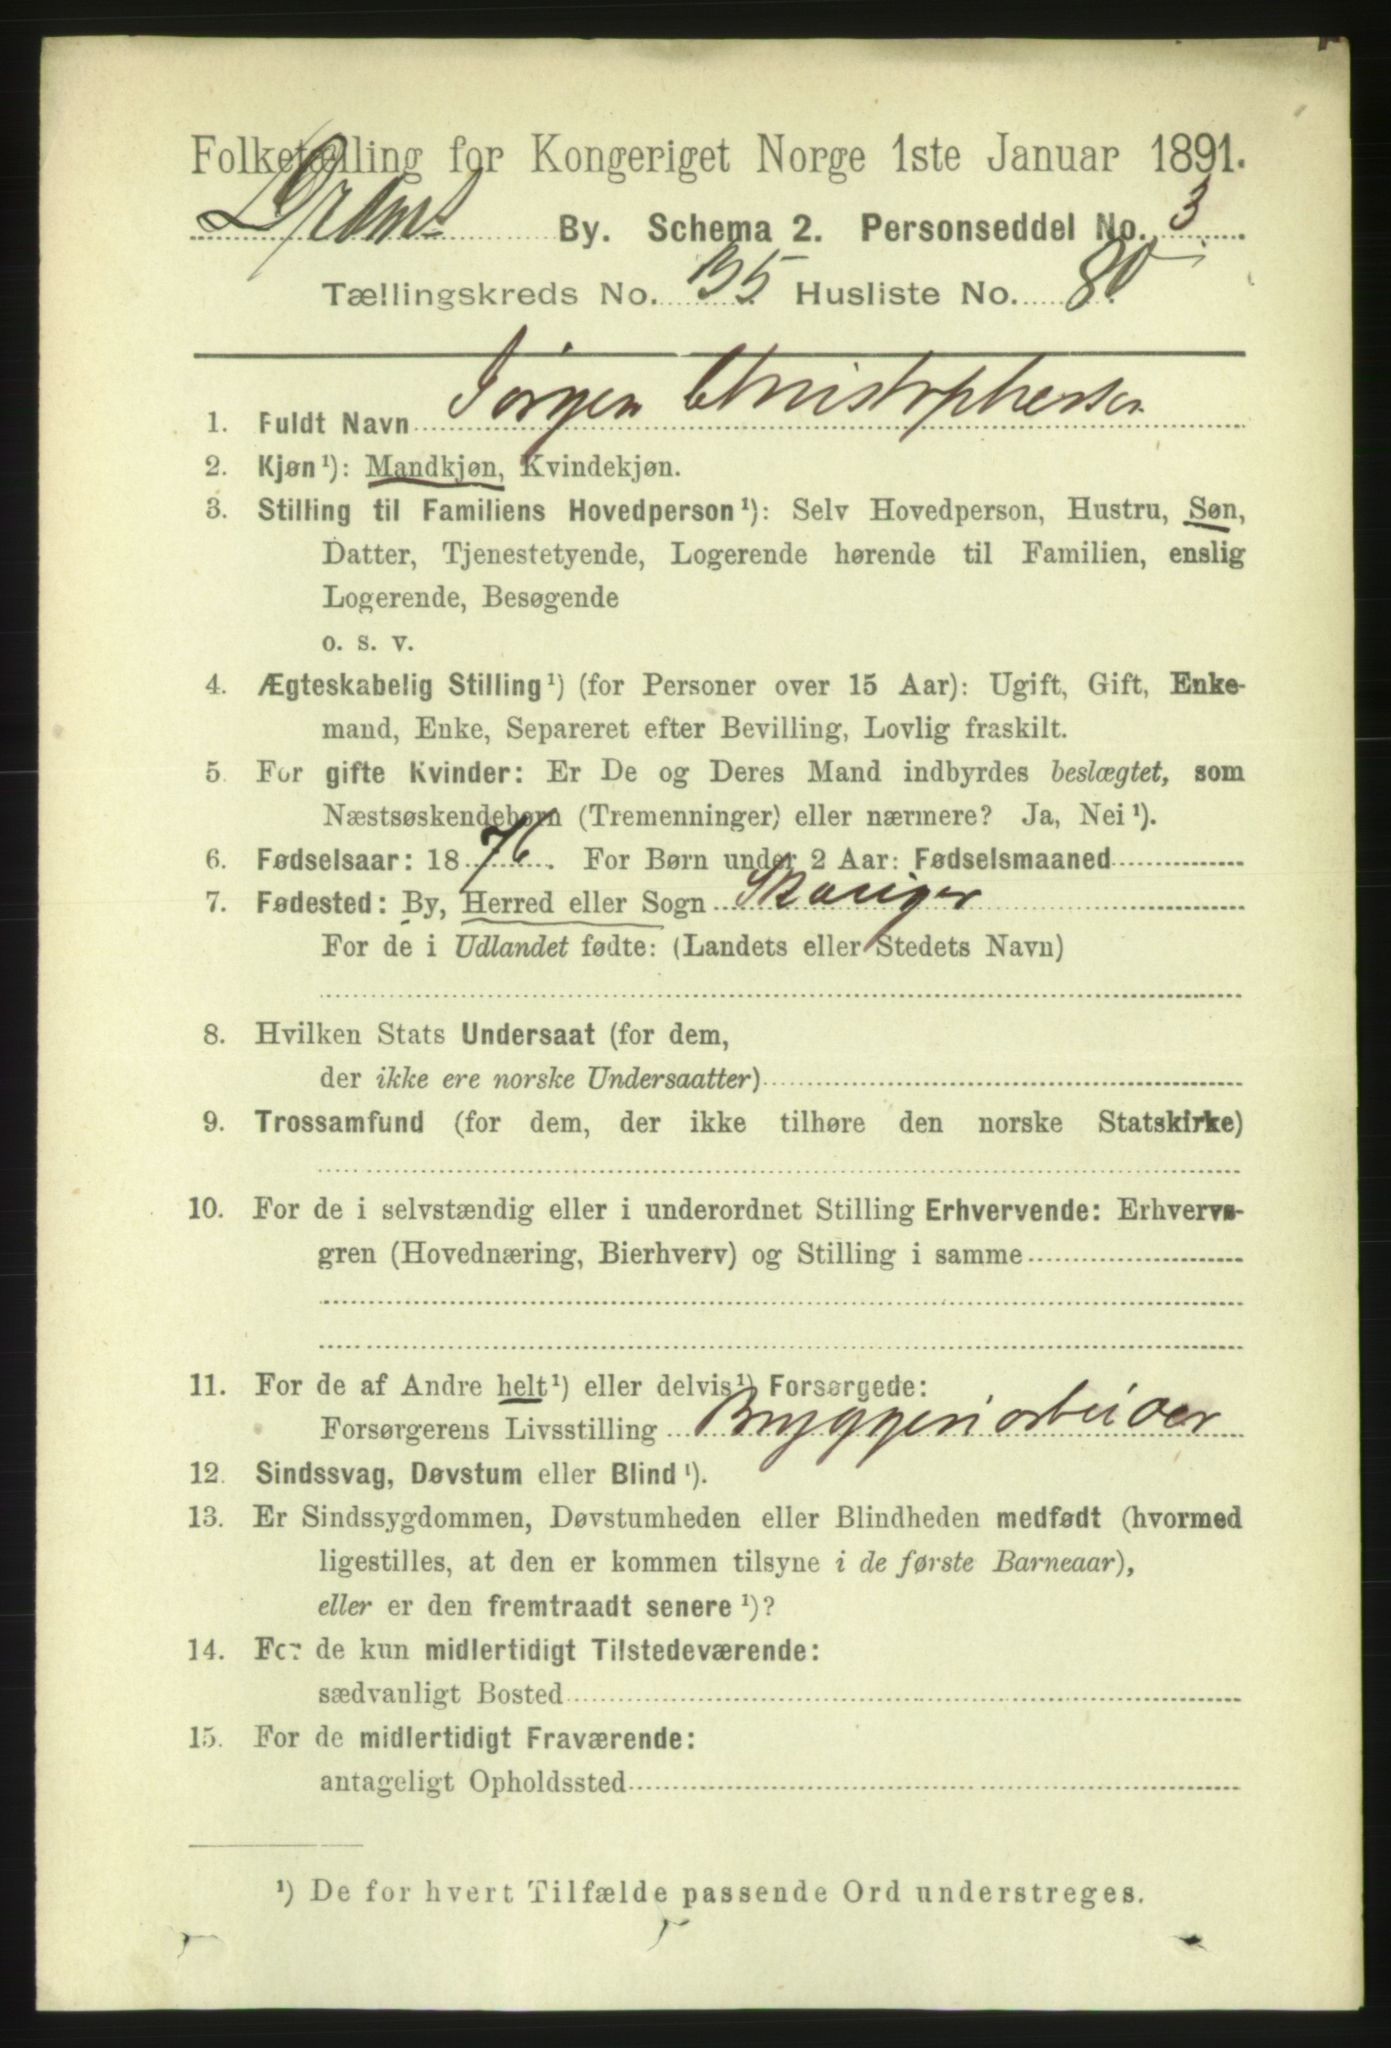 Folketælling for Kongeriget Norge 1ste Januar 1891.
Dramn By. Schema 2. Personseddel No. 3
Tællingskreds No. 35 Husliste No. 80
1. Fuldt Navn Jørgen Christophersen
2. Kjøn¹): Mandkjøn, Kvindekjøn.
3. Stilling til Familiens Hovedperson¹): Selv Hovedperson, Hustru, Søn,
Datter, Tjenestetyende, Logerende hørende til Familien, enslig
Logerende, Besøgende
o. s. v.
4. Ægteskabelig Stilling¹) (for Personer over 15 Aar): Ugift, Gift, Enke-
mand, Enke, Separeret efter Bevilling, Lovlig fraskilt.
5. For gifte Kvinder: Er De og Deres Mand indbyrdes beslægtet, som
Næstsøskendebørn (Tremenninger) eller nærmere? Ja, Nei¹).
6. Fødselsaar: 1876. For Børn under 2 Aar: Fødselsmaaned
7. Fødested: By, Herred eller Sogn Skauger
For de i Udlandet fødte: (Landets eller Stedets Navn)
8. Hvilken Stats Undersaat (for dem,
der ikke ere norske Undersaatter)
9. Trossamfund (for dem, der ikke tilhøre den norske Statskirke)
10. For de i selvstændig eller i underordnet Stilling Erhvervende: Erhvervs-
gren (Hovednæring, Bierhverv) og Stilling i samme
11. For de af Andre helt¹) eller delvis¹) Forsørgede:
Forsørgerens Livsstilling Bryggeriarbeider
12. Sindssvag, Døvstum eller Blind¹).
13. Er Sindssygdommen, Døvstumheden eller Blindheden medfødt (hvormed
ligestilles, at den er kommen tilsyne i de første Barneaar),
eller er den fremtraadt senere¹)?
14. For de kun midlertidigt Tilstedeværende:
sædvanligt Bosted
15. For de midlertidigt Fraværende:
antageligt Opholdssted
¹) De for hvert Tilfælde passende Ord understreges.